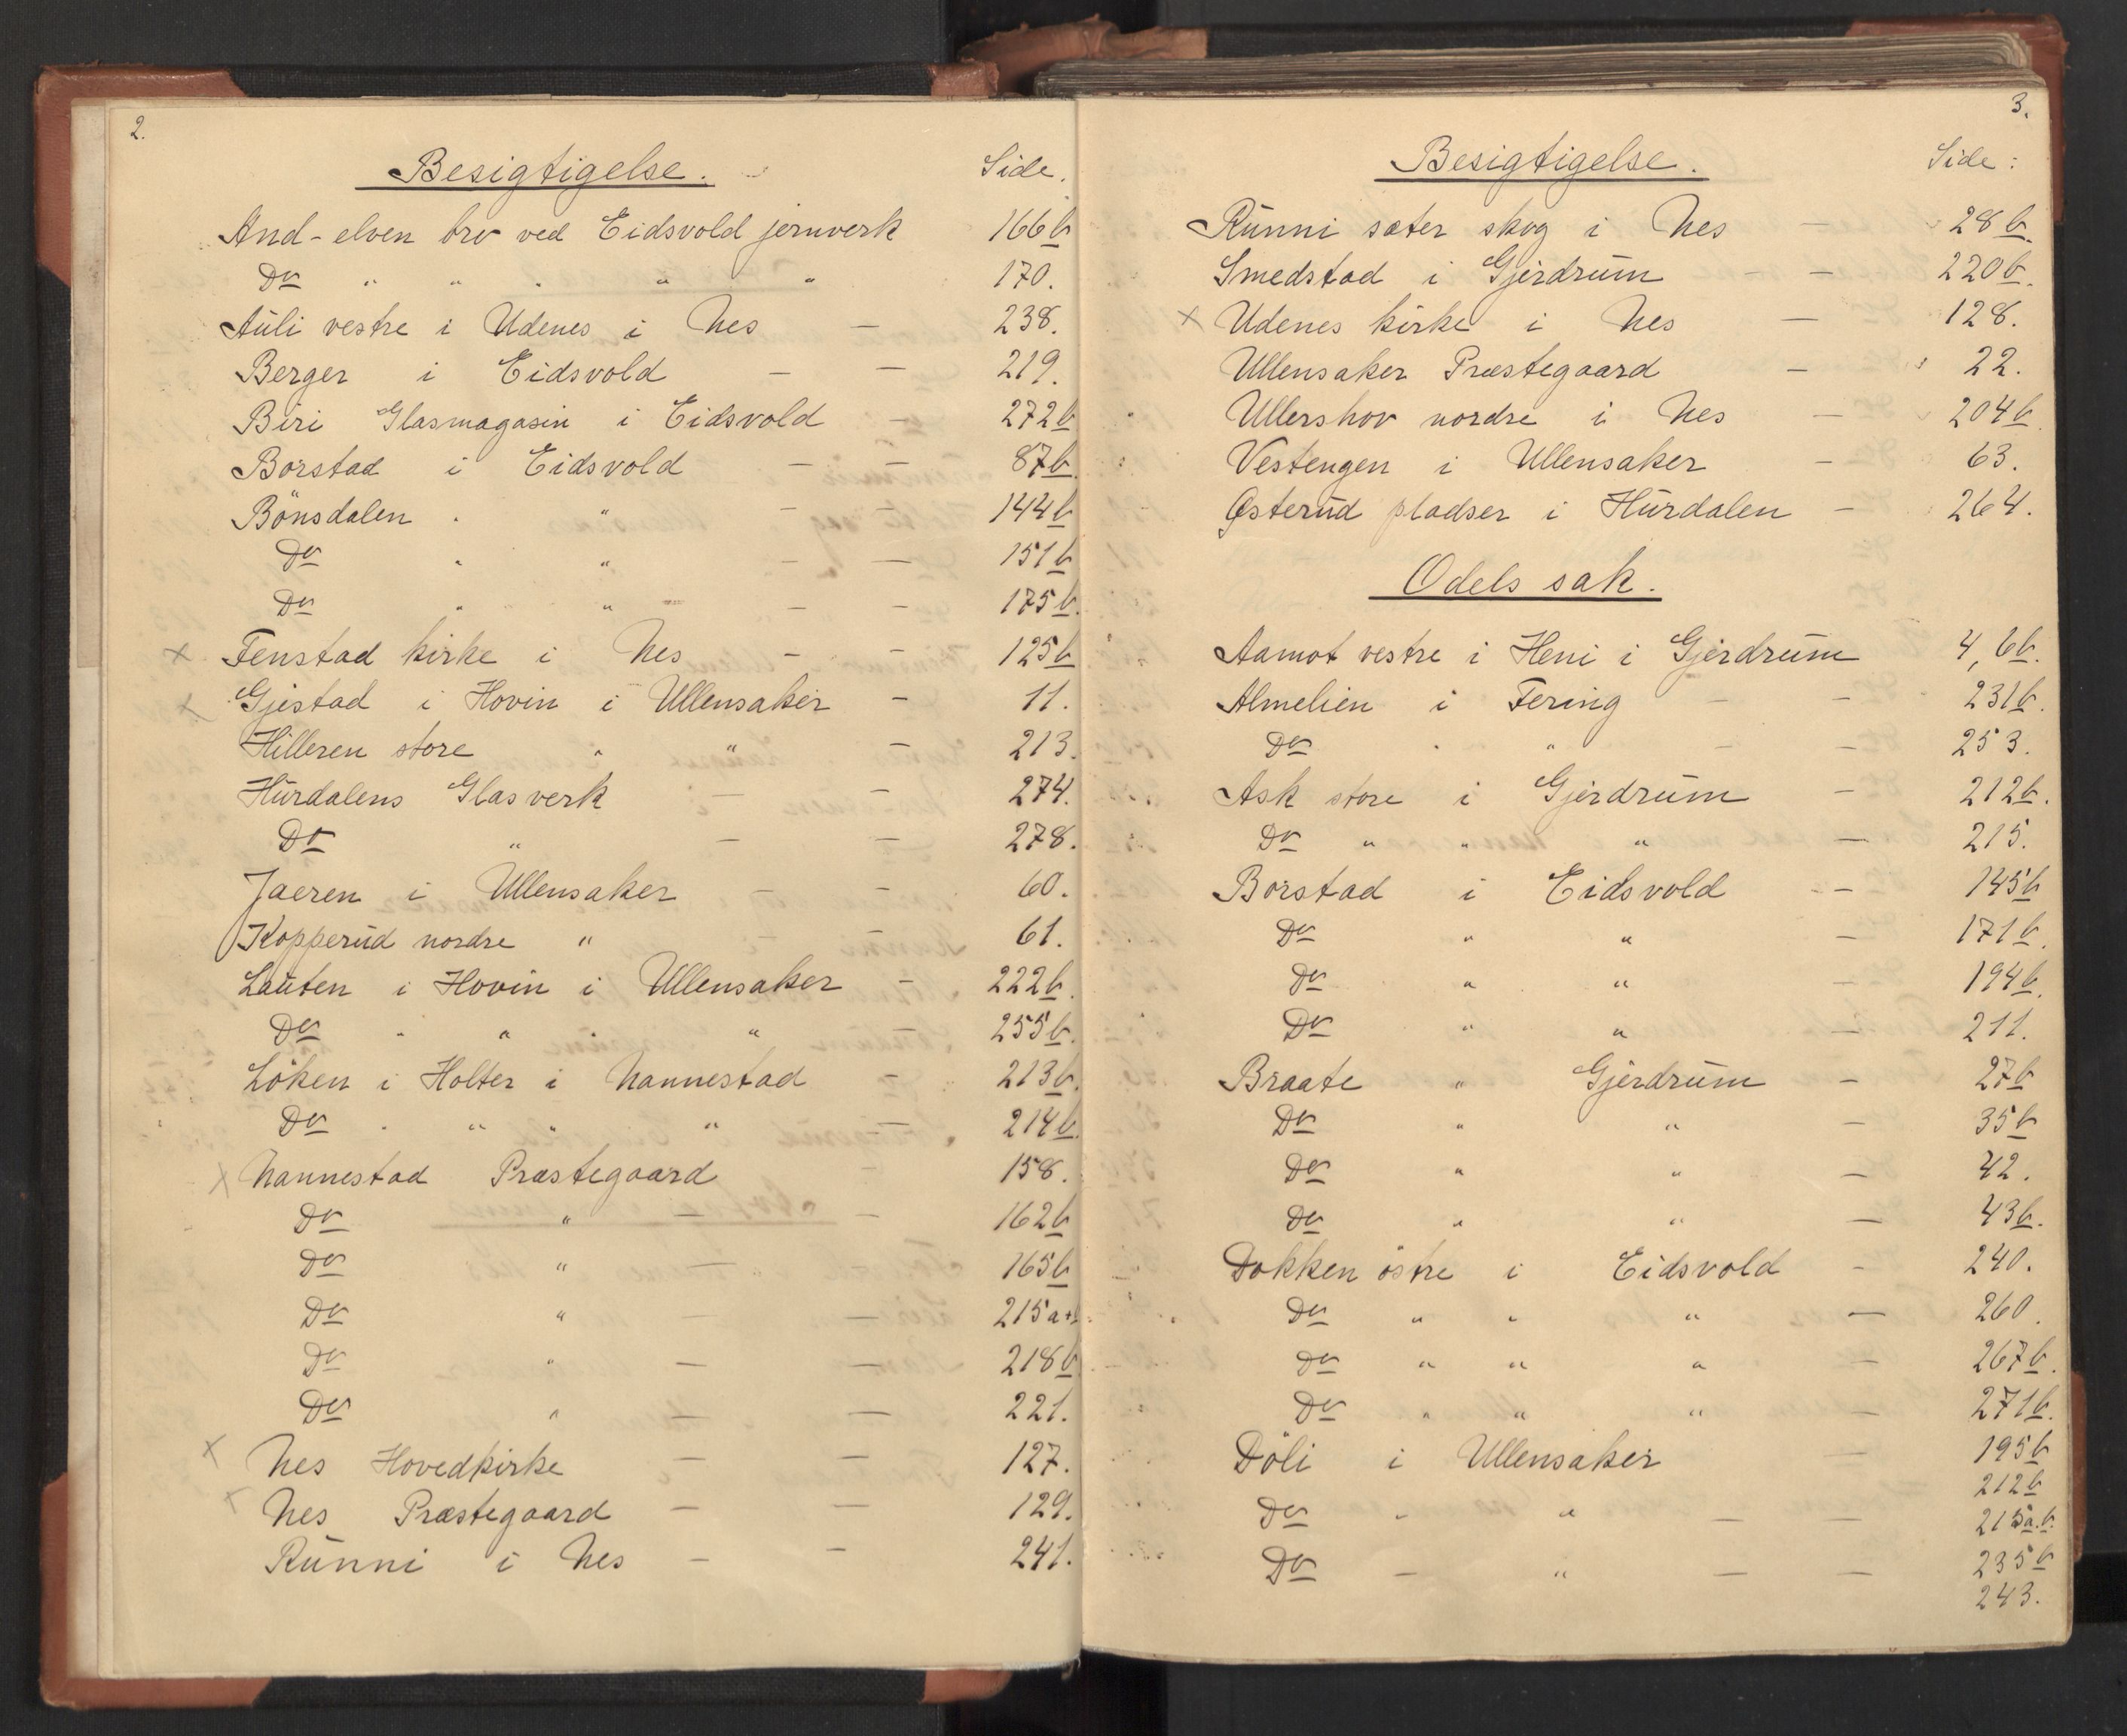 2.
Besigtigelse. Side.
And-elven bro ved Eidsvold jernverk 166b
Do " " " " " 170.
Auli vestre i Udenes i Nes — 238.
Berger i Eidsvold — — 219.
Biri Glasmagasin i Eidsvold — 272b
Borstad i Eidsvold — — 87b
Bönsdalen " " — — 144b
Do " " — — 151b
Do " " — — 175b.
x Fenstad kirke i Nes — — 125b
x Gjestad i Hovin i Ullensaker — 11.
Hilleren store " " — 213.
Hurdalens Glasverk — — 274.
Do " — — 278.
Jaeren i Ullensaker — — 60.
Kopperud nordre " 61.
Lauten i Hovin i Ullensaker — 222b.
Do " " " " 255b.
Löken i Holter i Nannestad 213b.
Do " " " " 214b.
x Nannestad Præstegaard — 158.
Do " — — 162b
Do " — — 165b
Do " — — 215a+
Do " — — 218b
Do " — — 221.
x Nes Hovedkirke — — 127.
x Nes Præstegaard — — 129.
Runni i Nes — — 241.
3.
Besigtigelse. Side:
Runni sæter skog i Nes — 28b.
Smedstad i Gjerdrum — — 220b.
x Udenes kirke i Nes — 128.
Ullensaker Præstegaard — 22.
Ullershov nordre i Nes — 204b.
Vestengen i Ullensaker — 63.
Østerud pladser i Hurdalen — 264.
Odels sak.
Aamot vestre i Heni i Gjerdrum 4, 6b.
Almelien i Fering — — 231b.
Do " " — — 253.
Ask store i Gjerdrum — 212b.
Do " " " — 215.
Borstad i Eidsvold — 145b
Do " " — 171b.
Do " " — 194b.
Do " " — 211.
Braate " Gjerdrum — 27b
Do " " — 35b
Do " " — 42.
Do " " — 43b.
Dokken östre i Eidsvold — 240.
Do " " " — 260.
Do " " " — 267b.
Do " " " — 271b.
Döli i Ullensaker — 195b
212b
Do " " — — 215a.b.
Do — " — — 235b
243.